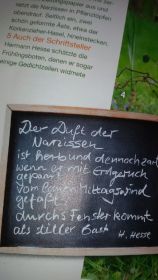 setzt die Narzissen in Pflanztöpfen
ebendort. Seitlich ein, zwei
schön geformte Äste, etwa der
Korkenzieher-Hasel, hineinstecken.
5 Auch der Schriftsteller
Hermann Hesse schätzte die
Frühlingsboten, denen er sogar
einige Gedichtzeilen widmete
4
Der Duft der
Narzissen
ist herb und dennoch zart
wenn er mit Erdgeruch
gepaart
Vom lauen Mittagswind
gefaßt,
durchs Fenster kommt
als stiller Gast
H. Hesse